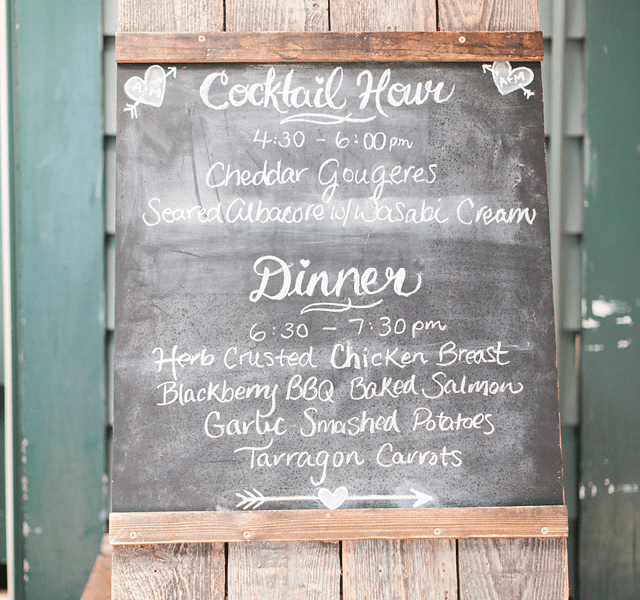 A+M
Cocktail Hour
A+M
4:30 - 6:00 pm
Cheddar Gougeres
Seared Albacore w/ Wasabi Cream
Dinner
6:30 - 7:30 pm
Herb Crusted Chicken Breast
Blackberry BBQ Baked Salmon
Garlic Smashed Potatoes
Tarragon Carrots